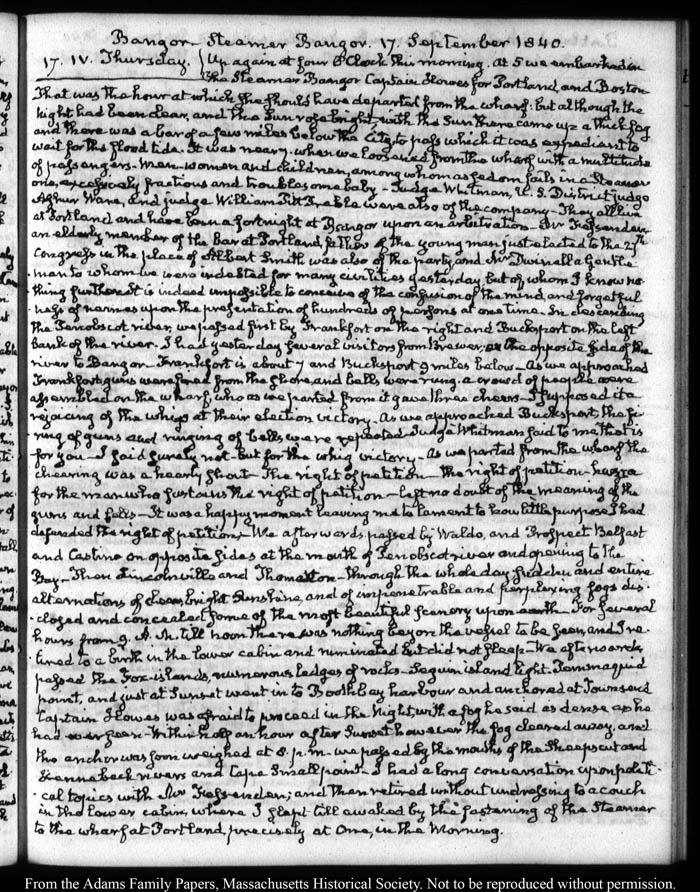 Bangor - Steamer Bangor. 17. September 1840.
17. IV. Thursday. Up again at four O'Clock this morning. At 5 we embarked in
the Steamer Bangor Captain Howes for Portland, and Boston
That was the hour at which she should have departed from the wharf: but although the
night had been clear, and the Sun rose bright, with the Sun there came up a thick fog
and there was a bar of a few miles below the City, to pass which it was expedient to
wait for the flood tide. It was near 7. when we loosened from the wharf with a multitude
of passengers - men - women and children, among whom as seldom fails in a Steamer
one, excessively fractious and troublesome baby - Judge Whitman, U. S. District judge
Ashur Ware, and judge William Pitt Preble were also of the company - They all live
at Portland, and have been a fortnight at Bangor upon an arbitration. Mr Fessenden
an elderly member of the Bar at Portland, father of the young man just elected to the 27th
Congress in the place of Albert Smith was also of the party, and Mr Dwinall a Gentle-
man to whom we were indebted for many civilities yesterday but of whom I know no-
thing further. It is indeed impossible to conceive of the confusion of the mind, and forgetful-
ness of names upon the presentation of hundreds of persons at one time. In descending
the Penobscot river, we passed first by Frankfort on the right and Bucksport on the left
bank of the river. I had yesterday several visitors from Brewer, on the opposite side of the
river to Bangor - Frankfort is about 7 and Bucksport 9 miles below - As we approached
Frankfort guns were fired from the shore, and bells were rung. a crowd of people were
assembled on the wharf, who as we parted from it gave three cheers - I supposed it a
rejoicing of the whigs at their election victory. As we approached Bucksport, the fi-
ring of guns and ringing of bells were repeated. Judge Whitman said to me that is
for you - I said surely not - but for the whig victory - As we parted from the wharf the
cheering was a hearty shout - The right of petition - the right of petition - huzza
for the man who sustains the right of petition - left no doubt of the meaning of the
guns and bells - It was a happy moment leaving me to lament to how little purpose I had
defended the right of petition - We afterwards passed by Waldo, and Prospect Belfast
and Castine on opposite sides at the mouth of Penobscot river and opening to the
Bay - Then Lincolnville and Thomaston - through the whole day sudden and entire
alternations of clear, bright Sunshine, and of impenetrable and perplexing fogs dis-
closed and concealed some of the most beautiful scenery upon earth - For several
hours from 9. A.M. till noon there was nothing beyond the vessel to be seen, and I re-
tired to a birth in the lower cabin and ruminated but did not sleep - We afterwards
passed the Fox-islands, numerous ledges of rocks - Seguin island light - Pemmaquid
point, and just at Sunset went in to Boothbay harbour and anchored at Townsend
Captain Howes was afraid to proceed in the Night, with a fog he said as dense as he
had ever seen - Within half an hour after Sunset however the fog cleared away, and
the anchor was soon weighed at 8. p.m. we passed by the mouths of the Sheepscut and
Kennebeck rivers and Cape Small point - I had a long conversation upon politi-
cal topics with Mr Fessenden; and then retired without undressing to a couch
in the lower cabin, where I slept till awaked by the fastening of the Steamer
to the wharf at Portland, precisely at One, in the Morning.
From the Adams Family Papers, Massachusetts Historical Society. Not to be reproduced without permission.